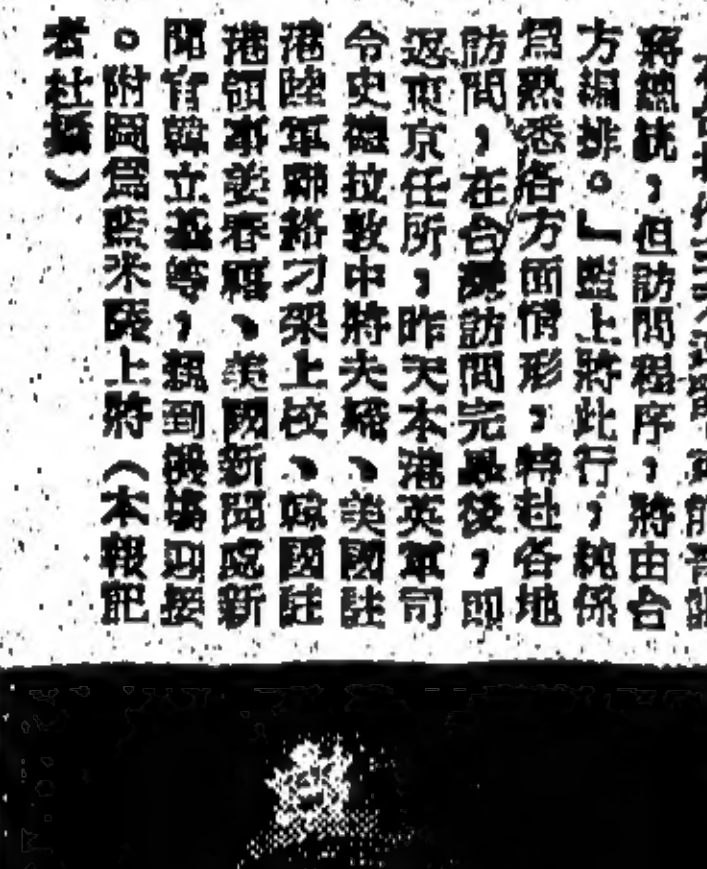 蔣總統，但訪問程序，將由台
方編排。」藍上將此行，純係
爲熟悉各方面情形，特赴各地
訪問，在台灣訪問完畢後，即
返東京任所，昨天本港英軍司
令史德拉敦中將夫婦、美國駐
港陸軍聯絡刁架上校、韓國駐
港領事姜春熙、美國新聞處新
聞官韓立基等，親到機場迎接
。附圖爲藍米薩上將（本報記
者杜攝）